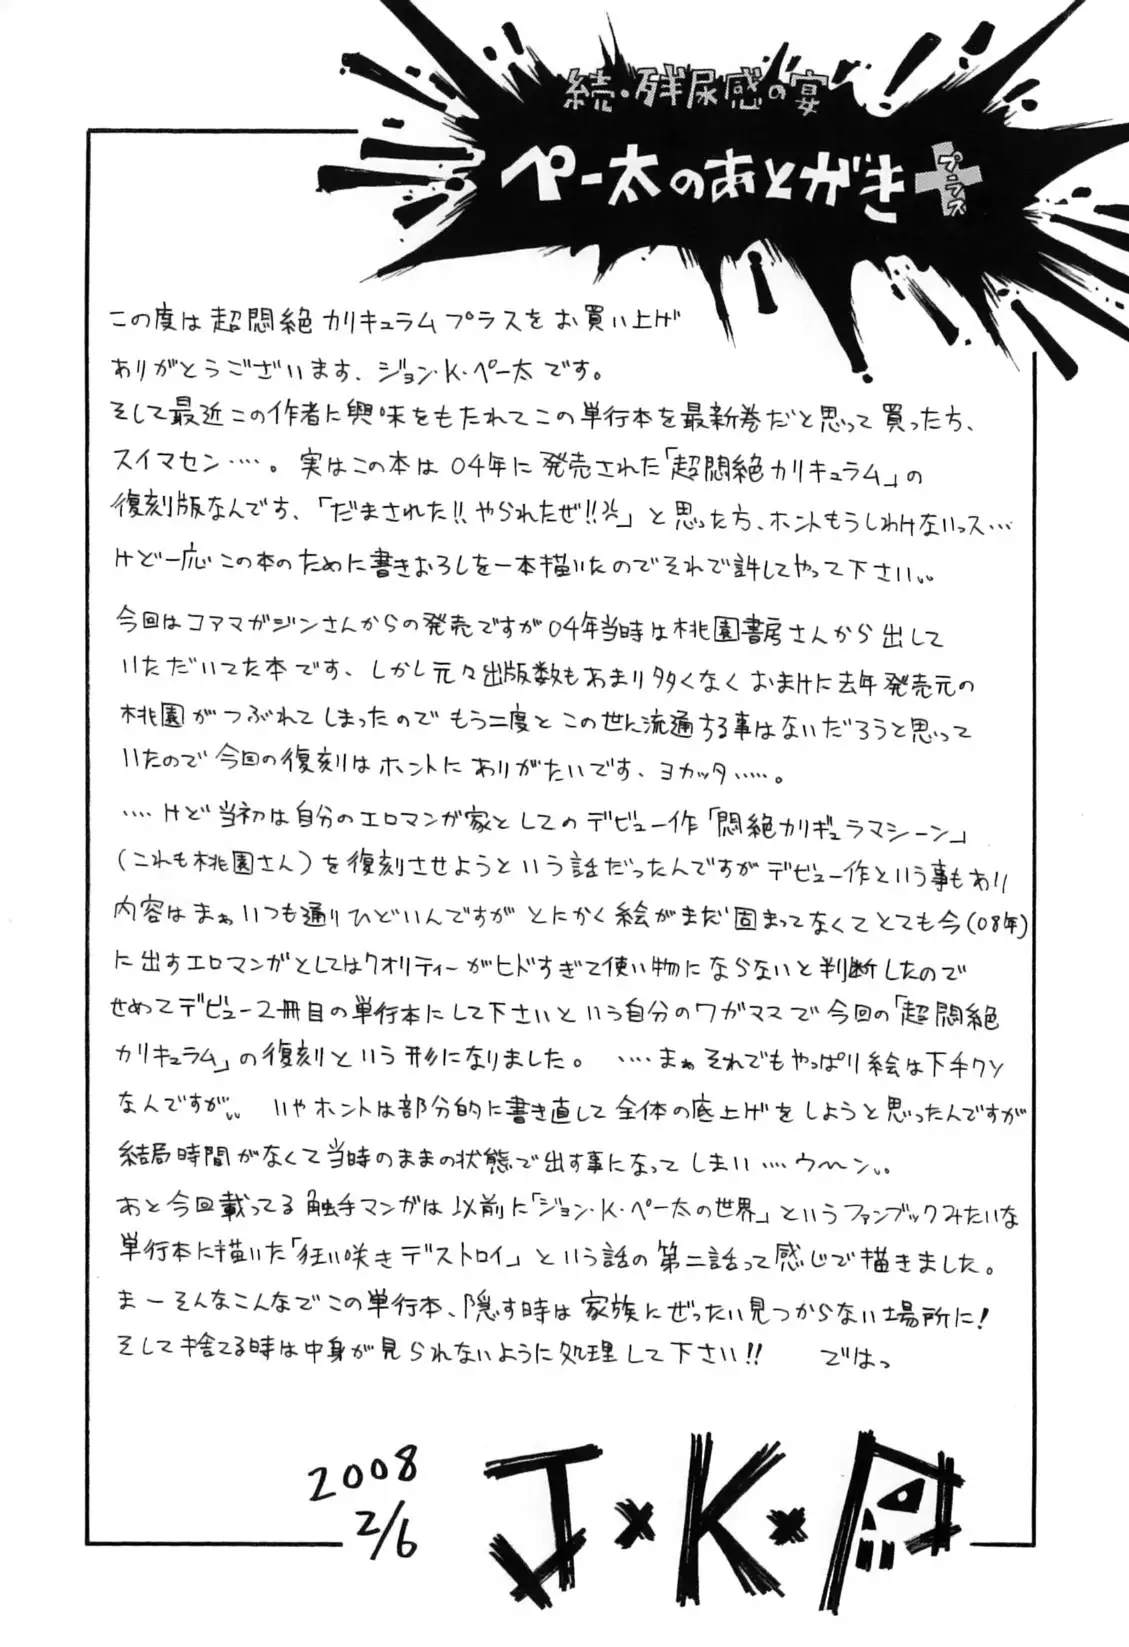 続・残尿感の宴
ペー太のあとがき
プラス
この度は超悶絶カリキュラムプラスをお買い上げ
ありがとうございます、ジョン・K・ペー太です。
そして最近この作者に興味をもたれてこの単行本を最新巻だと思って買った方、
スイマセン‥‥。実はこの本は04年に発売された「超悶絶カリキュラム」の
復刻版なんです、「だまされた!!やられたぜ!!」と思った方、ホントもうしわけないっス…
けど一応この本のために書きおろしを一本描いたのでそれで許してやって下さい、、
今回はコアマガジンさんからの発売ですが04年当時は桃園書房さんから出して
いただいてた本です、しかし元々出版数もあまり多くなくおまけに去年発売元の
桃園がつぶれてしまったのでもう二度とこの世に流通する事はないだろうと思って
いたので今回の復刻はホントにありがたいです、ヨカッタ‥‥‥。
‥‥けど当初は自分のエロマンガ家としてのデビュー作「悶絶カリギュラマシーン」
(これも桃園さん)を復刻させようという話だったんですがデビュー作という事もあり
内容はまぁいつも通りひどいんですがとにかく絵がまだ固まってなくてとても今(08年)
に出すエロマンガとしてはクオリティーがヒドすぎて使い物にならないと判断したので
せめてデビュー2冊目の単行本にして下さいという自分のワガママで今回の「超悶絶
カリキュラム」の復刻という形になりました。‥‥まぁそれでもやっぱり絵は下手クソ
なんですが、、いやホントは部分的に書き直して全体の底上げをしようと思ったんですが
結局時間がなくて当時のままの状態で出す事になってしまい‥‥ウ〜ン、、
あと今回載ってる触手マンガは以前に「ジョン・K・ペー太の世界」というファンブックみたいな
単行本に描いた「狂い咲きデストロイ」という話の第二話って感じで描きました。
まーそんなこんなでこの単行本、隠す時は家族にぜったい見つからない場所に!
そして捨てる時は中身が見られないように処理して下さい!! ではっ
2008
2/6
J×K×P